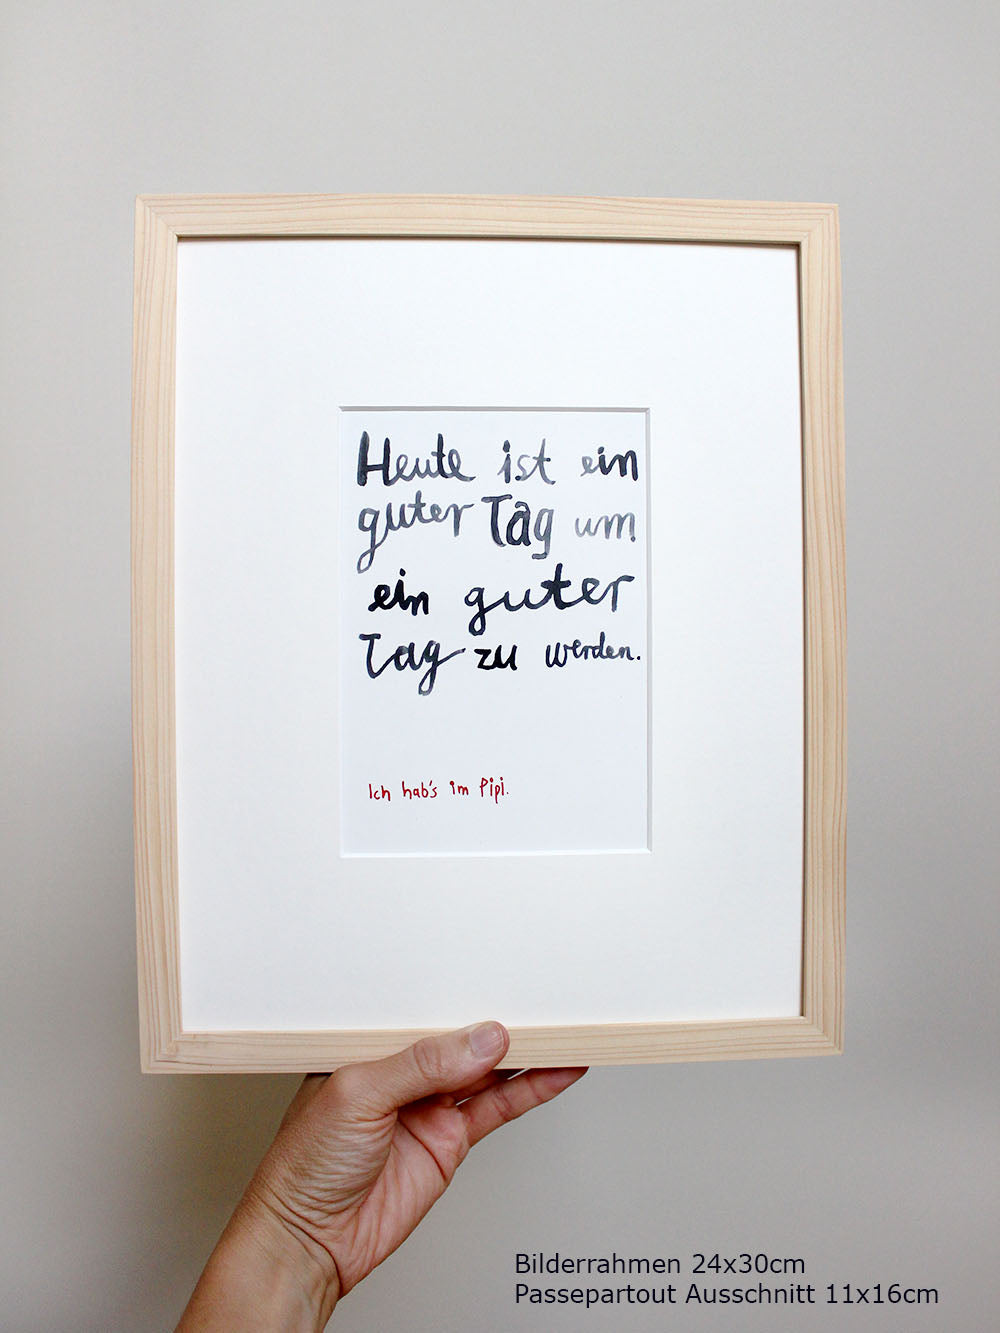 Heute ist ein
guter Tag um
ein guter
Tag zu werden.
Ich hab's im Pipi.
Bilderrahmen 24x30cm
Passepartout Ausschnitt 11x16cm